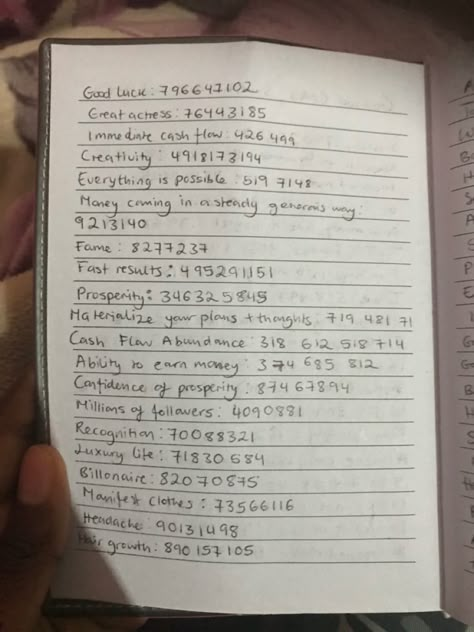 Good Luck: 796647102
Great actress: 76443185
Immediate cash flow: 426 499
Creativity: 4918173194
Everything is possible: 519 7148
Money coming in a steady generous way:
9213140
Fame: 8277237
Fast results: 495291151
Prosperity: 346325845
Materialize your plans + thoughts: 719 481 71
Cash Flow Abundance: 318 612 518 714
Ability to earn money: 374 685 812
Confidence of prosperity: 87467894
Millions of followers: 4090881
Recognition: 70088321
Luxury life: 71830584
Billonaire: 82070875
Manifest clothes: 73566116
Headache: 90131498
Hair growth: 890 157 105